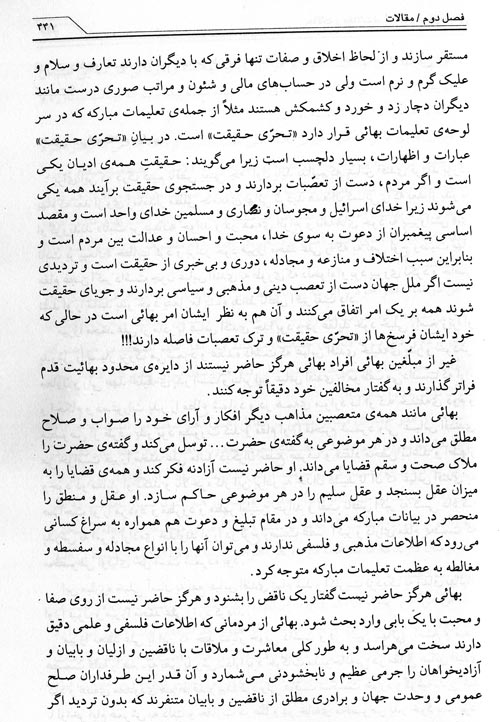 فصل دوم / مقالات
۴۴۱
مستقر سازند و از لحاظ اخلاق و صفات تنها فرقی که با دیگران دارند تعارف و سلام و
علیک گرم و نرم است ولی در حساب‌های مالی و شئون و مراتب صوری درست مانند
دیگران دچار زد و خورد و کشمکش هستند مثلاً از جمله‌ی تعلیمات مبارکه که در سر
لوحه‌ی تعلیمات بهائی قرار دارد «تحرّی حقیقت» است. در بیانِ «تحرّی حقیقت»
عبارات و اظهارات، بسیار دلچسب است زیرا می‌گویند: حقیقتِ همه‌ی ادیان یکی
است و اگر مردم، دست از تعصّبات بردارند و در جستجوی حقیقت برآیند همه یکی
می‌شوند زیرا خدای اسرائیل و مجوسان و نصاری و مسلمین خدای واحد است و مقصد
اساسی پیغمبران از دعوت به سوی خدا، محبت و احسان و عدالت بین مردم است و
بنابراین سبب اختلاف و منازعه و مجادله، دوری و بی‌خبری از حقیقت است و تردیدی
نیست اگر ملل جهان دست از تعصب دینی و مذهبی و سیاسی بردارند و جویای حقیقت
شوند همه بر یک امر اتفاق می‌کنند و آن هم به نظر ایشان امر بهائی است در حالی که
خود ایشان فرسخ‌ها از «تحرّی حقیقت» و ترک تعصبات فاصله دارند!!!
غیر از مبلّغین بهائی افراد بهائی هرگز حاضر نیستند از دایره‌ی محدود بهائیت قدم
فراتر گذارند و به گفتار مخالفین خود دقیقاً توجه کنند.
بهائی مانند همه‌ی متعصبین مذاهب دیگر افکار و آرای خود را صواب و صلاح
مطلق می‌داند و در هر موضوعی به گفته‌ی حضرت... توسل می‌کند و گفته‌ی حضرت را
ملاک صحت و سقم قضایا می‌داند. او حاضر نیست آزادنه فکر کند و همه‌ی قضایا را به
میزان عقل بسنجد و عقل سلیم را در هر موضوعی حاکم سازد. او عقل و منطق را
منحصر در بیانات مبارکه می‌داند و در مقام تبلیغ و دعوت هم همواره به سراغ کسانی
می‌رود که اطلاعات مذهبی و فلسفی ندارند و می‌توان آنها را با انواع مجادله و سفسطه و
مغالطه به عظمت تعلیمات مبارکه متوجه کرد.
بهائی هرگز حاضر نیست گفتار یک ناقض را بشنود و هرگز حاضر نیست از روی صفا
و محبت با یک بابی وارد بحث شود. بهائی از مردمانی که اطلاعات فلسفی و علمی دقیق
دارند سخت می‌هراسد و به طور کلی معاشرت و ملاقات با ناقضین و ازلیان و بابیان و
آزادیخواهان را جرمی عظیم و نابخشودنی می‌شمارد و آن قدر این طرفداران صلح
عمومی و وحدت جهان و برادری مطلق از ناقضین و بابیان متنفرند که بدون تردید اگر